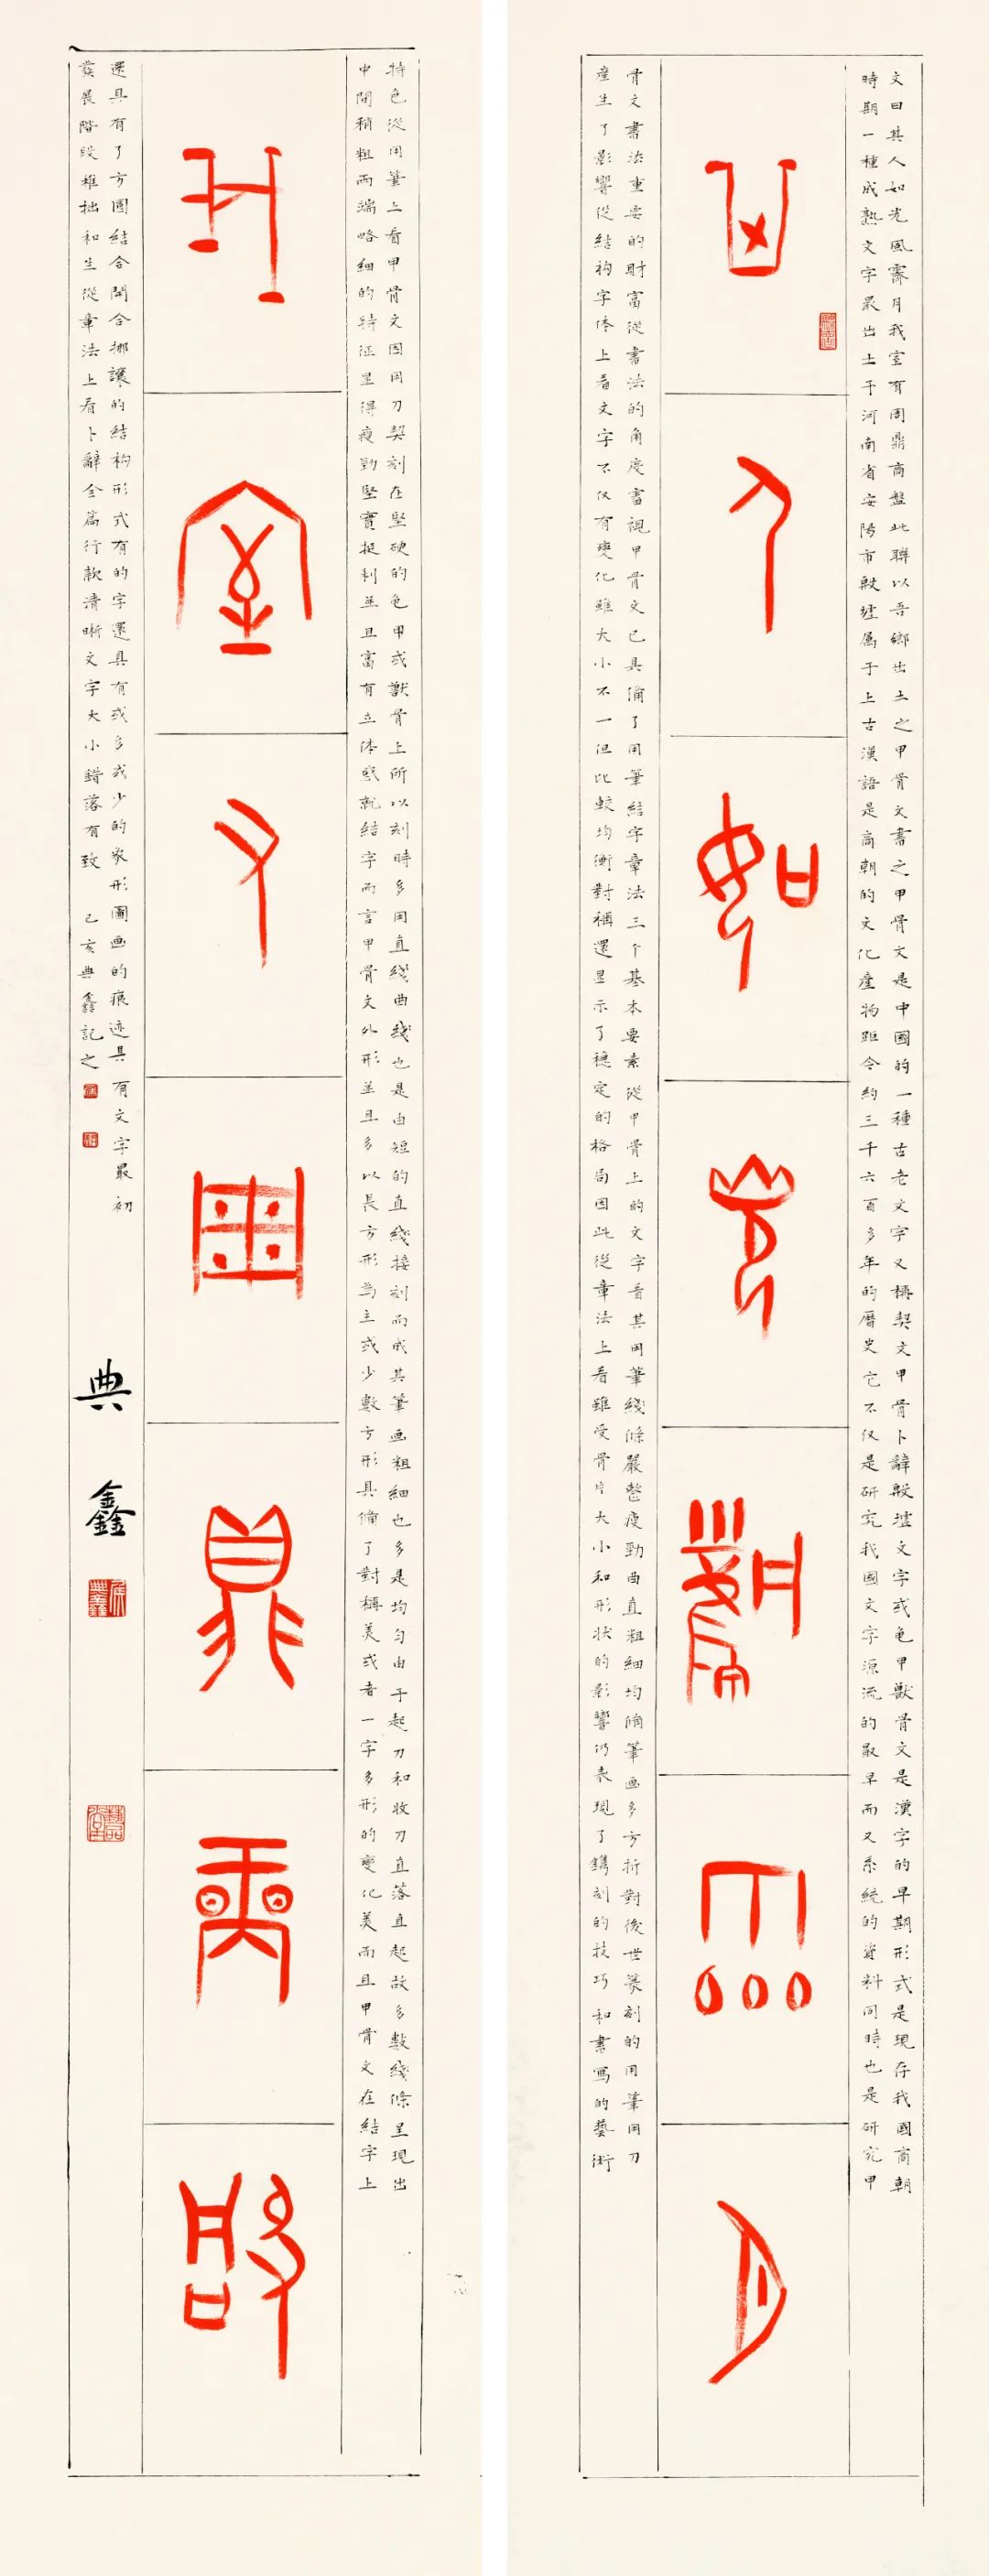 其人如光風霽月
文曰其人如光風霽月我室有周鼎商盤此聯以吾鄉出土之甲骨文書之甲骨文是中國的一種古老文字又稱契文甲骨卜辭殷墟文字或龟甲獸骨文是漢字的早期形式是現存我國商朝
時期一種成熟文字最出土于河南省安陽市殷墟屬于上古漢語是商朝的文化產物距今約三千六百多年的曆史它不仅是研究我國文字源流的最早而又系統的資料同時也是研究甲
骨文書法重要的財富從書法的角度審視甲骨文已具備了用筆結字章法三个基本要素從甲骨上的文字看其用筆綫條嚴整瘦勁曲直粗細均備筆画多方折對後世篆刻的用筆用刀
產生了影響從結构字体上看文字不仅有變化雖大小不一但比較均衡對稱還显示了穩定的格局因此從章法上看雖受骨片大小和形狀的影響仍表現了鐫刻的技巧和書寫的藝術
我室有周鼎商盤
特色從用筆上看甲骨文因用刀契刻在堅硬的龟甲或獸骨上所以刻時多用直綫曲綫也是由短的直綫接刻而成其筆画粗細也多是均匀由于起刀和收刀直落直起故多數綫條呈現出
中間稍粗而端略細的特征显得瘦勁堅實挺利並且富有立体感就結字而言甲骨文外形並且多以長方形為主或少數方形具備了對稱美或者一字多形的變化美而且甲骨文在結字上
還具有了方圓結合開合挪讓的結构形式有的字還具有或多或少的象形圖画的痕迹具有文字最初
發展階段稚拙和生從章法上看卜辭全篇行款清晰文字大小錯落有致 己亥典鑫記之
典鑫